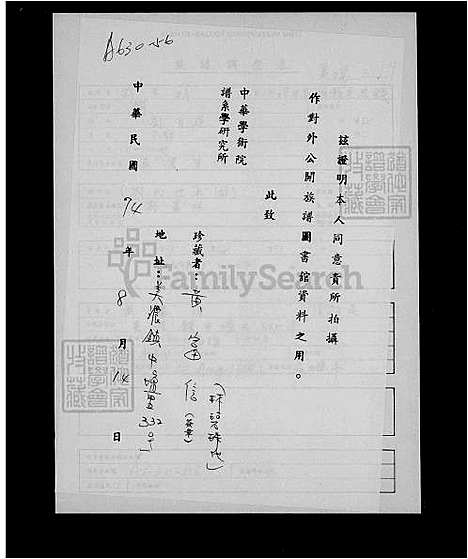 A630-56
茲證明本人同意貴所拍攝
作對外公開族譜圖書館資料之用。
此致
中華學術院
譜系學研究所
珍藏者：黃富信(簽章)
地址：美濃鎮中壇里332號
中華民國74年8月14日
FamilySearch